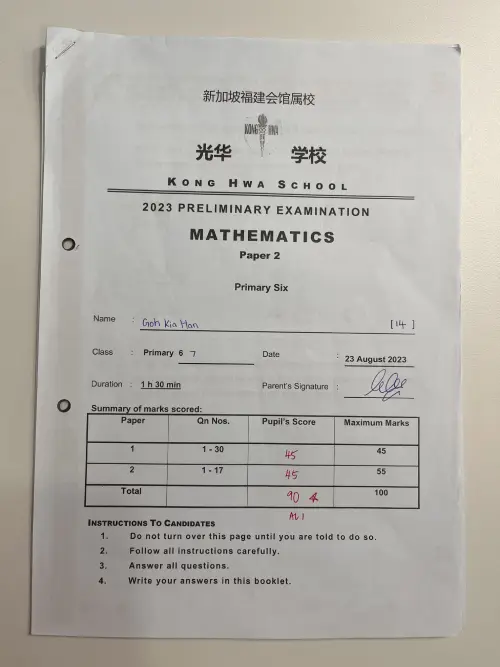 新加坡福建会馆属校
KONG HWA
光华 学校
KONG HWA SCHOOL
2023 PRELIMINARY EXAMINATION
MATHEMATICS
Paper 2
Primary Six
Name : Goh Kia Han [14]
Class : Primary 6 7 Date : 23 August 2023
Duration : 1 h 30 min Parent's Signature :
Summary of marks scored:
Paper Qn Nos. Pupil's Score Maximum Marks
1 1 - 30 45 45
2 1 - 17 45 55
Total 90 100
AL1
INSTRUCTIONS TO CANDIDATES
1. Do not turn over this page until you are told to do so.
2. Follow all instructions carefully.
3. Answer all questions.
4. Write your answers in this booklet.